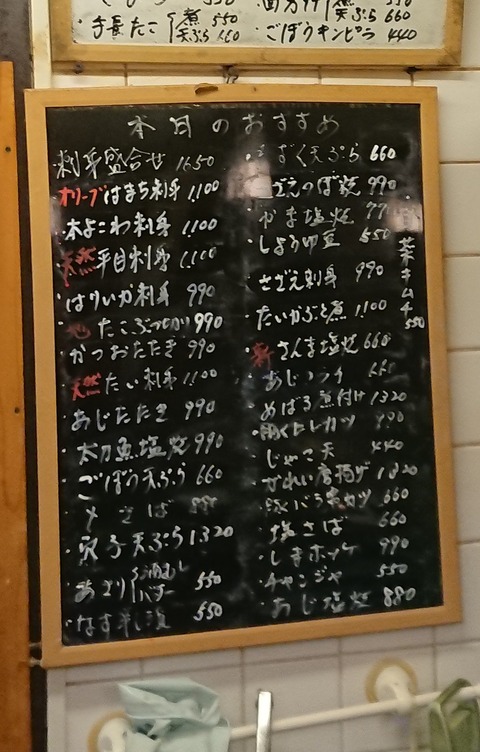 手長たこ 煮 550
天ぷら 660
天ぷら 660
・ごぼうキンピラ 440
本日のおすすめ
刺身盛合せ 1650
・オリーブはまち刺身 1,100
・木よこわ刺身 1,100
・天然平目刺身 1,100
・はりいか刺身 990
・地たこぶつ切り 990
・かつおたたき 990
・天然たい刺身 1100
・あじたたき 990
・太刀魚塩焼 990
・ごぼう天ぷら 660
・〆さば
・穴子天ぷら 1320
・あさり 酒むし
バター 550
・なす 550
・もずく天ぷら 660
・さざえのぼ焼 990
かま塩焼
・しょうゆ豆 550
・さざえ刺身 990
・たいかぶと煮 1,100
・新さんま塩焼 660
・あじフライ 660
・めばる煮付け 1320
カツ
・じゃこ天 440
・かれい唐揚げ 1320
・豚バラ串カツ 660
・塩さば 660
・しまホッケ 990
・チャンジャ 550
・あじ塩焼 880
菜キムチ 550